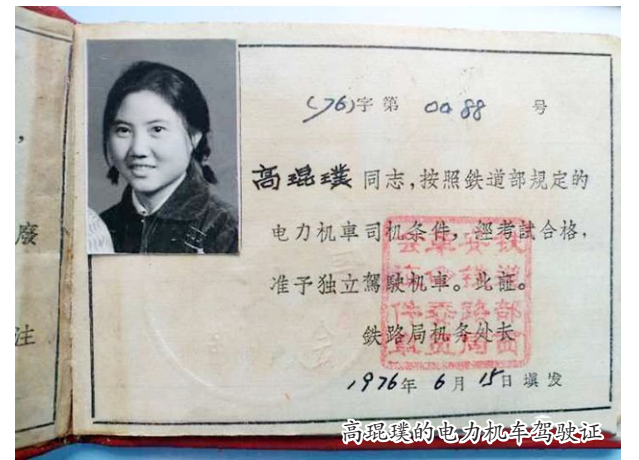 (76)字第 0088 号
高琨璞同志，按照鉄道部规定的
电力机車司机条件，經考試合格，
准予独立駕駛机車。此証。
鉄路局机务处长
1976年6月15日填发
，
廢
注
高琨璞的电力机车驾驶证